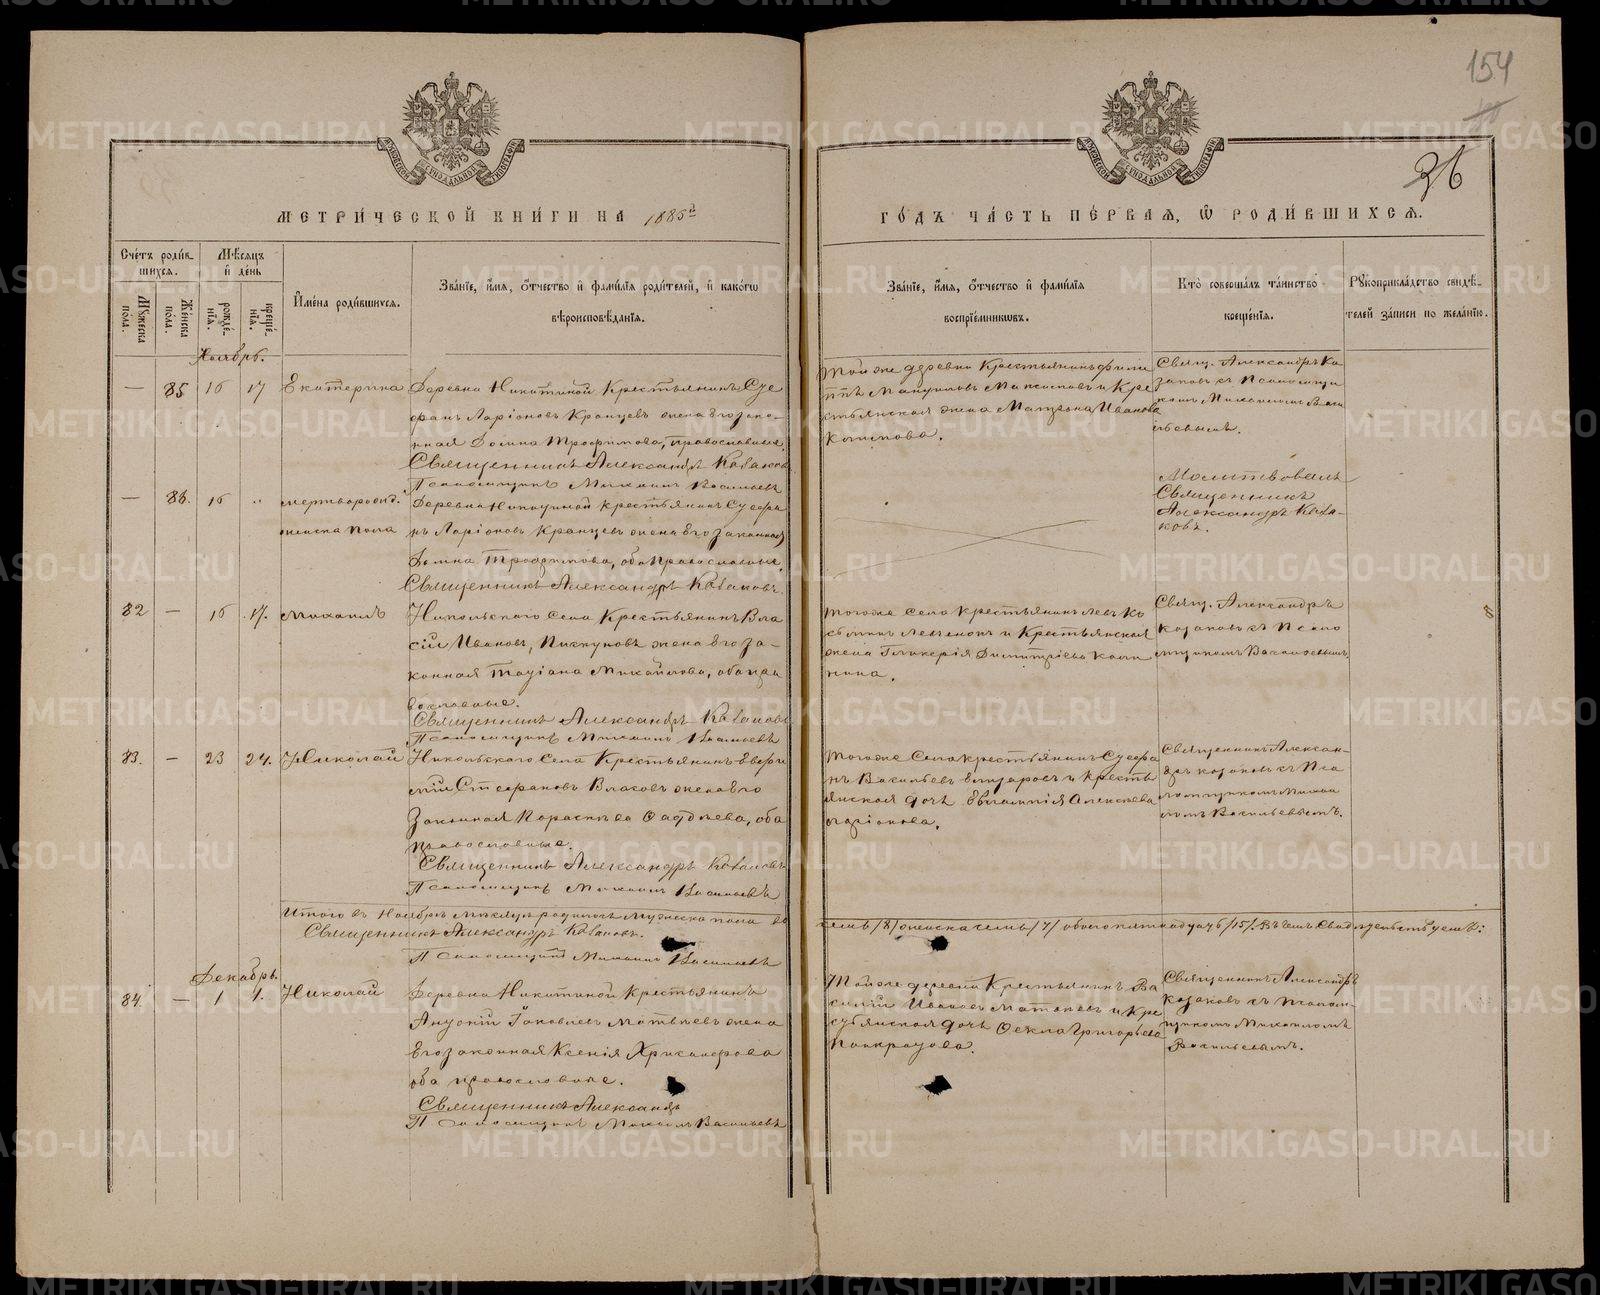 154
36
МЕТРИ́ЧЕСКОЙ КНИ́ГИ НА 1885й
ГО́ДЪ ЧА́СТЬ ПЕ́РВАЯ, Ѿ РОДИ́ВШИХСЯ.
Сче́тъ роди́вшихся.
Мꙋжеска по́ла.
Же́нска по́ла.
Мѣ́сяцъ и де́нь
рожде́нїя.
креще́нїя.
Имена роди́вшихся.
Зва́нїе, и́мя, о́тчество и фами́лїя роди́телей, и како́гѡ
вѣроисповѣ́данїя.
Зва́нїе, и́мя, о́тчество и фами́лїя
воспрїе́мникѡвъ.
Кто̀ соверша́лъ та́инство
креще́нїя.
Рꙋкоприкла́дство свидѣ́-
телей за́писи по жела́нїю.
Ноябрь.
— 85 16 17 Екатерина
Деревни Никитиной Крестьянинъ Сте
фанъ Ларіоновъ Кранцевъ жена его зако-
нная Домна Трофимова, православные
Священникъ Александръ Казаковъ
Псаломщикъ Михаилъ Васильевъ
Тойже деревни Крестьянинъ Фили
ппъ Мануиловъ Максимовъ и Кре
стьянская жена Матрона Иванова
Свящ. Александръ Ка
заковъ съ Псаломщи
комъ Михаиломъ Васи
льевымъ.
— 86. 16 „ мертворожд.
женска пола
Деревни Никитиной крестьянинъ Стефа
нъ Ларіоновъ Кранцевъ жена его законная
Домна Трофимова, оба Православные.
Священникъ Александръ Казаковъ.
Молитвовалъ
Священникъ
Александръ Каза-
ковъ.
82 — 16 17. Михаилъ
Никольскаго Села Крестьянинъ Вла
сій Ивановъ, Пискуновъ жена его за-
конная Татіана Михайлова, оба пра
вославные.
Священникъ Александръ Казаковъ
Псаломщикъ Михаилъ Васильевъ
тогоже села крестьянинъ Левъ Ко
и Крестьянская
жена Гликерія Димитріева Кали
нина.
Свящ. Александръ
Казаковъ съ Псало
мщикомъ Васильевымъ.
83. — 23 24. Николай
Никольскаго Села Крестьянинъ Евфи
мій Стефановъ Власовъ жена его
Законная Параскева Фаддеева, оба
православные.
Священникъ Александръ Казаковъ
Псаломщикъ Михаилъ Васильевъ
тогоже Села крестьянинъ Стефа
нъ Васильевъ и Кресть
янская дочь Евлампія Алексѣева
Ларіонова.
Священникъ Алексан-
дръ Казаковъ съ Пса
ломщикомъ Михаи
ломъ Васильевымъ.
Итого въ Ноябрѣ мѣсяцѣ родилось мужеска пола во
семь /8/ женска семь /7/ обоего пятнадцать /15/. Въ чемъ Свидѣтельствуемъ:
Священникъ Александръ Казаковъ.
Псаломщикъ Михаилъ Васильевъ
Декабрь.
84. — 1 1. Николай
Деревни Никитиной Крестьянинъ
Антоній Іаковлевъ Матвѣевъ жена
Его законная Ксенія Хрисанфова
оба православные.
Священникъ Александръ
Псаломщикъ Михаилъ Васильевъ
Тойже деревни Крестьянинъ Ва
силій Ивановъ Матвѣевъ и Кре
стьянская дочь Ѳекла Григорьева
Панкратова.
Священникъ Александръ
Казаковъ съ Псалом-
щикомъ Михаиломъ
Васильевымъ.
METRIKI.GASO-URAL.RU